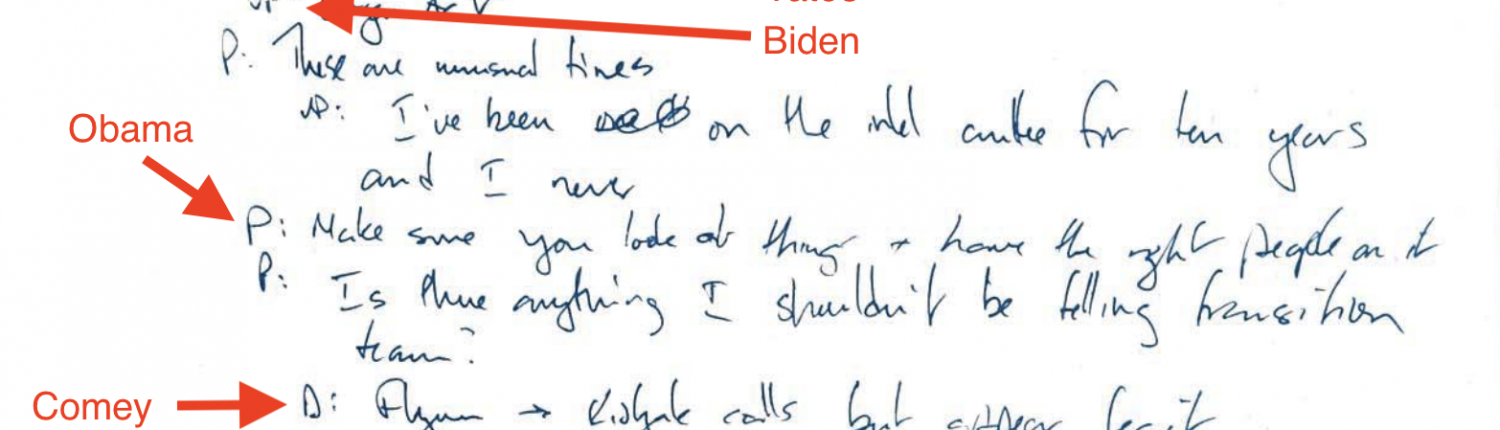 Biden
P: These are unusual times
VP: I've been on the intel cmtee for ten years
and I never
Obama
P: Make sure you look at things + have the right people on it
P: Is there anything I shouldn't be telling transition
team?
Comey
D: Flynn → Kislyak calls but appear legit